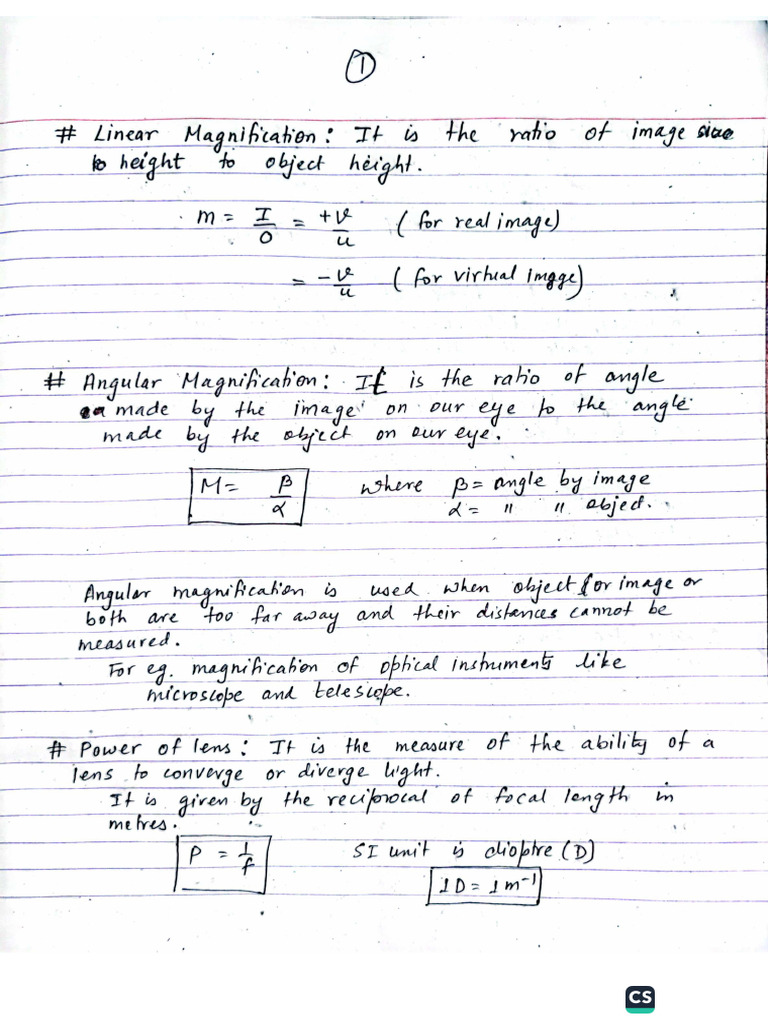 1
# Linear Magnification: It is the ratio of image
height to object height.
m = I/O = +v/u (for real image)
= -v/u (for virtual image)
# Angular Magnification: It is the ratio of angle
made by the image on our eye to the angle
made by the object on our eye.
M = β/α where β = angle by image
α = " " object.
Angular magnification is used when object or image or
both are too far away and their distances cannot be
measured.
For eg. magnification of optical instruments like
microscope and telescope.
# Power of lens: It is the measure of the ability of a
lens to converge or diverge light.
It is given by the reciprocal of focal length in
metres.
P = 1/f SI unit is dioptre (D)
1 D = 1 m⁻¹
CS